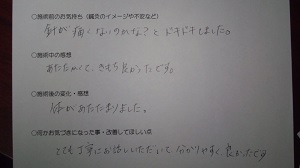 ○施術前のお気持ち（鍼灸のイメージや不安など）
針が痛くないのかな？とドキドキしました。
○施術中の感想
あたたかくて、きもち良かったです。
○施術後の変化・感想
体があたたまりました。
○何かお気づきになった事・改善してほしい点
とても丁寧にお話しいただいて分かりやすく良かったです